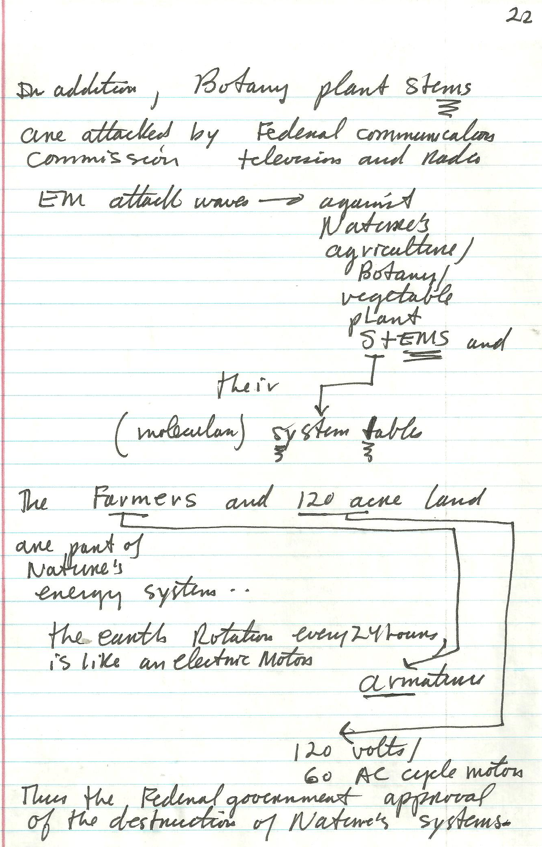 22
In addition, Botany plant stems
are attacked by Federal communications
Commission television and radio
EM attack waves → against
Nature's
agriculture/
Botany/
vegetable
plant
STEMS and
their
(molecular) system table
The Farmers and 120 acre land
are part of
Nature's
energy system..
the earth Rotation every 24 hours,
is like an electric Motors
armature
120 volts/
60 AC cycle motors
Thus the Federal government approval
of the destruction of Nature's systems.